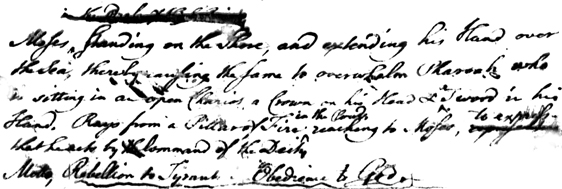 Moses standing on the Shore, and extending his Hand over
the Sea, thereby causing the same to overwhelm Pharoah who
is sitting in an open Chariot, a Crown on his Head & a Sword in his
Hand. Rays from a Pillar of Fire in the Clouds reaching to Moses, to express
that he acts by Command of the Deity
Motto, Rebellion to Tyrants is Obedience to God.